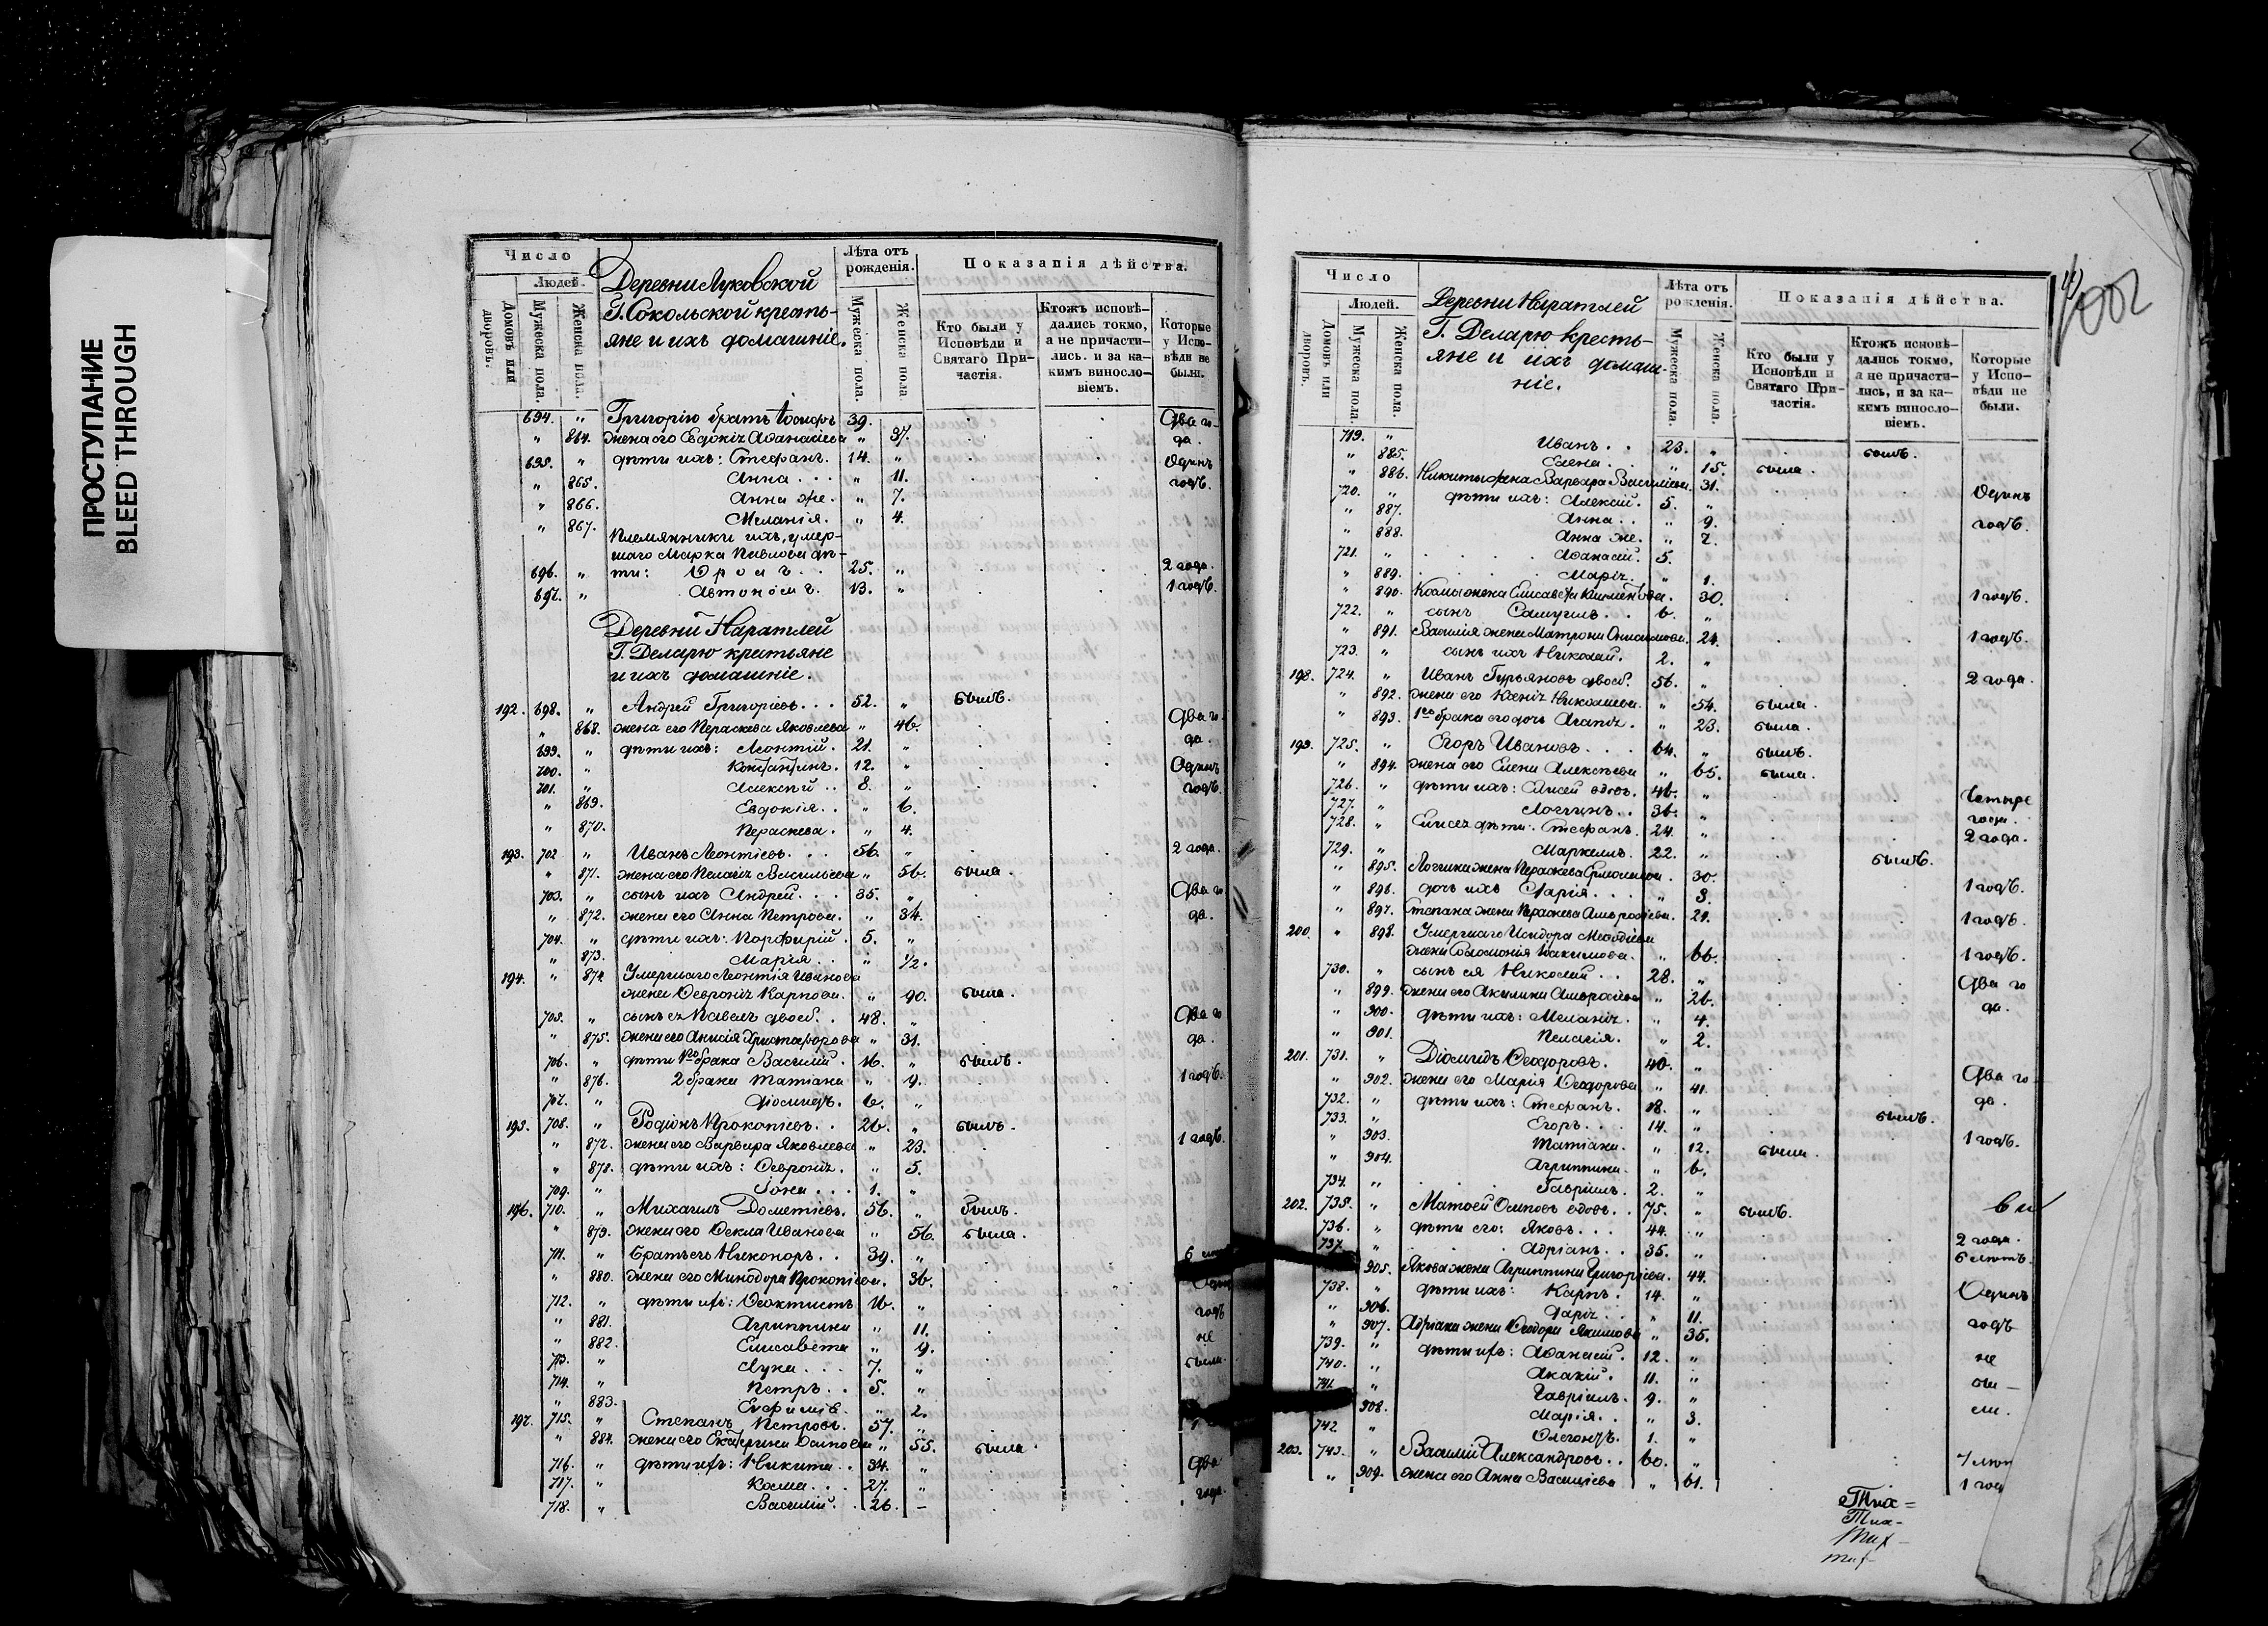 ПРОСТУПАНИЕ
BLEED THROUGH
Число
Людей.
Домовъ или дворовъ.
Мужеска пола.
Женска пола.
Деревни Луковской
Г. Сокольской кресть-
яне и ихъ домашніе.
Лѣта отъ рожденія.
Мужеска пола.
Женска пола.
Показанія дѣйства.
Кто были у Исповѣди и Святаго Причастія.
Ктожъ исповѣ-
дались токмо,
а не причасти-
лись. и за ка-
кимъ виносло-
віемъ.
Которые
у Испо-
вѣди не
были.
694. " Григорію братъ Іосифъ 39. " Два го-
" 864. жена его Евдокія Аѳанасіева " 37. да.
695. " дѣти ихъ: Стефанъ. 14. " Одинъ
" 865. Анна . . . " 11. годъ.
" 866. Анна же. " 7.
" 867. Меланія. " 4.
Племянники ихъ, умер-
шаго Марка Павлова дѣ-
696. " ти: 25. " 2 года.
697. " Автономъ. 13. " 1 годъ.
Деревни Наратлей
Г. Деларю кресть­яне
и ихъ домашніе.
192. 698. " Андрей Григорьевъ . . . 52. " былъ.
" 868. жена его Параскева Яковлева " 46. Два го-
699. " дѣти ихъ: Леонтій. 21. " да.
700. " Константинъ. 12. " Одинъ
701. " Алексѣй . . 8. " годъ.
" 869. Евдокія . . " 6.
" 870. Параскева. " 4.
193. 702 " Иванъ Леонтіевъ . . . 56. " 2 года.
" 871. жена его Пелагія Васильева " 56. была.
703. " сынъ ихъ Андрей . . . 35. " Два го-
" 872. жена его Анна Петрова. " 34. да.
704. " дѣти ихъ: Порфирій. 5. "
" 873. Марія . . " 1/2.
194. " 874. Умершаго Леонтія Иванова
жена Февронія Карпова. " 90. была.
705. " сынъ ея Павелъ двоеб. . 48. " Два го-
" 875. жена его Анисія Христофорова " 31. да.
706. " дѣти 1го брака Василій. 16. " былъ.
" 876. 2 брака Татіана " 9. 1 годъ.
707. " Діомидъ. 6. "
195. 708. " Родіонъ Прокопіевъ . . 26. " былъ.
" 877. жена его Варвара Яковлева " 23. 1 годъ.
" 878. дѣти ихъ: Февронія. " 5.
709. " Іона . . . 1. "
196. 710. " Михаилъ Дометіевъ. 56. " былъ.
" 879. жена его Ѳекла Иванова " 56. была.
711. " Братъ его Никоноръ . . 39. " 6
" 880. жена его Минодора Прокопіева. 36.
712. " дѣти ихъ: Ѳеоктистъ 16. " годъ
" 881. Агриппина " 11. не
" 882. Елисавета " 9. были.
713. " Лука . . . 7. "
714. " Петръ . . 5. "
" 883. Евфимія. " 2.
197. 715. " Степанъ Петровъ. 57. "
" 884. жена его Екатерина Осипова " 55. была.
716. " дѣти ихъ: Никита . . 34. " Два
717. " Косма . . . 27. "
718. " Василій. . 26. – года.
Число
Людей.
Домовъ или дворовъ.
Мужеска пола
Женска пола.
Деревни Наратлей
Г. Деларю кресть-
яне и ихъ домаш-
ніе.
Лѣта отъ рожденія.
Мужеска пола
Женска пола
Показанія дѣйства.
Кто были у Исповѣди и Святаго При-
частія.
Ктожъ исповѣ-
дались токмо,
а не причасти-
лись, и за ка-
кимъ виносло-
віемъ.
Которые
у Испо-
вѣди не
были.
719. " Иванъ . . 23. " былъ.
" 885. Елена . . " 15. была.
" 886. Никиты жена Варвара Васильева. 31.
720. " дѣти ихъ: Алексій. 5. " Одинъ
" 887. Анна . . " 9. годъ.
" 888. Анна же. " 7.
721. " Аѳанасій. 5.
" 889. Марія. " 1.
" 890. Космы жена Елисавета 30. 1 годъ.
722. " сынъ Самуилъ . . 6. "
" 891. Василія жена Матрона Онисимова. 24. 1 годъ.
723. " сынъ ихъ Николай. 2. "
198. 724. " Иванъ Гурьяновъ двоеб. 56. " 2 года.
" 892. жена его Ксенія Николаева. " 54. была.
" 893. 1го брака его дочь Агапія. " 23. была.
199. 725. " Егоръ Ивановъ . . . 64. " былъ.
" 894. жена его Елена Алексѣева " 65. была.
726. " дѣти ихъ: Елисей вдов. 46. " Четыре
727. " Логгинъ . . 36. " года.
728. " Елисея дѣти: Стефанъ. 24. " 2 года.
729. " Маркеллъ. 22. " былъ.
" 895. Логгина жена Параскева Ермолаева. 30.
" 896. дочь ихъ Дарія . . . " 3. 1 годъ.
" 897. Степана жена Параскева Амвросіева. 21. 1 годъ.
200. " 898. Умершаго Исидора Меѳодіева
жена Соломонія Іоакимова. " 66. 1 годъ.
730. " сынъ ея Николай . . 28. " Два го-
" 899. жена его Акилина Амвросіева " 26. да.
" 900. дѣти ихъ: Меланія. " 4.
" 901. Пелагія. " 2.
201. 731. " Діомидъ Ѳеодоровъ. 40. "
" 902. жена его Марія Ѳеодорова " 41. Два го-
732. " дѣти ихъ: Стефанъ. 18. " да.
733. " Егоръ . . . 14. " былъ.
" 903. Татіана. " 12. была. 1 годъ.
" 904. Агриппина. " 6.
734. " Гавріилъ. 2. "
202. 735. " Матѳей Осиповъ вдовъ . . 75. " былъ.
736. " дѣти его: Яковъ . . . 44. " 2 года.
737. " Адріанъ . . 35. " 6 лѣтъ.
905. Якова жена Агриппина Григорьева. 44.
738. " дѣти ихъ: Карпъ. 14. " Одинъ
" 906. Дарія . . " 11.
" 907. Адріана жена Ѳеодора Якимова " 35. годъ
739. " дѣти ихъ: Аѳанасій. 12. "
740. " Акакій. 11. " не
741. " Гавріилъ. 9. "
908. Марія . . " 3.
742 " 1. "
203. 743. " Василій Александровъ . . 60. "
" 909. жена его Анна " 61. 1 год
Тих=
Тих-
Тих-
тих-